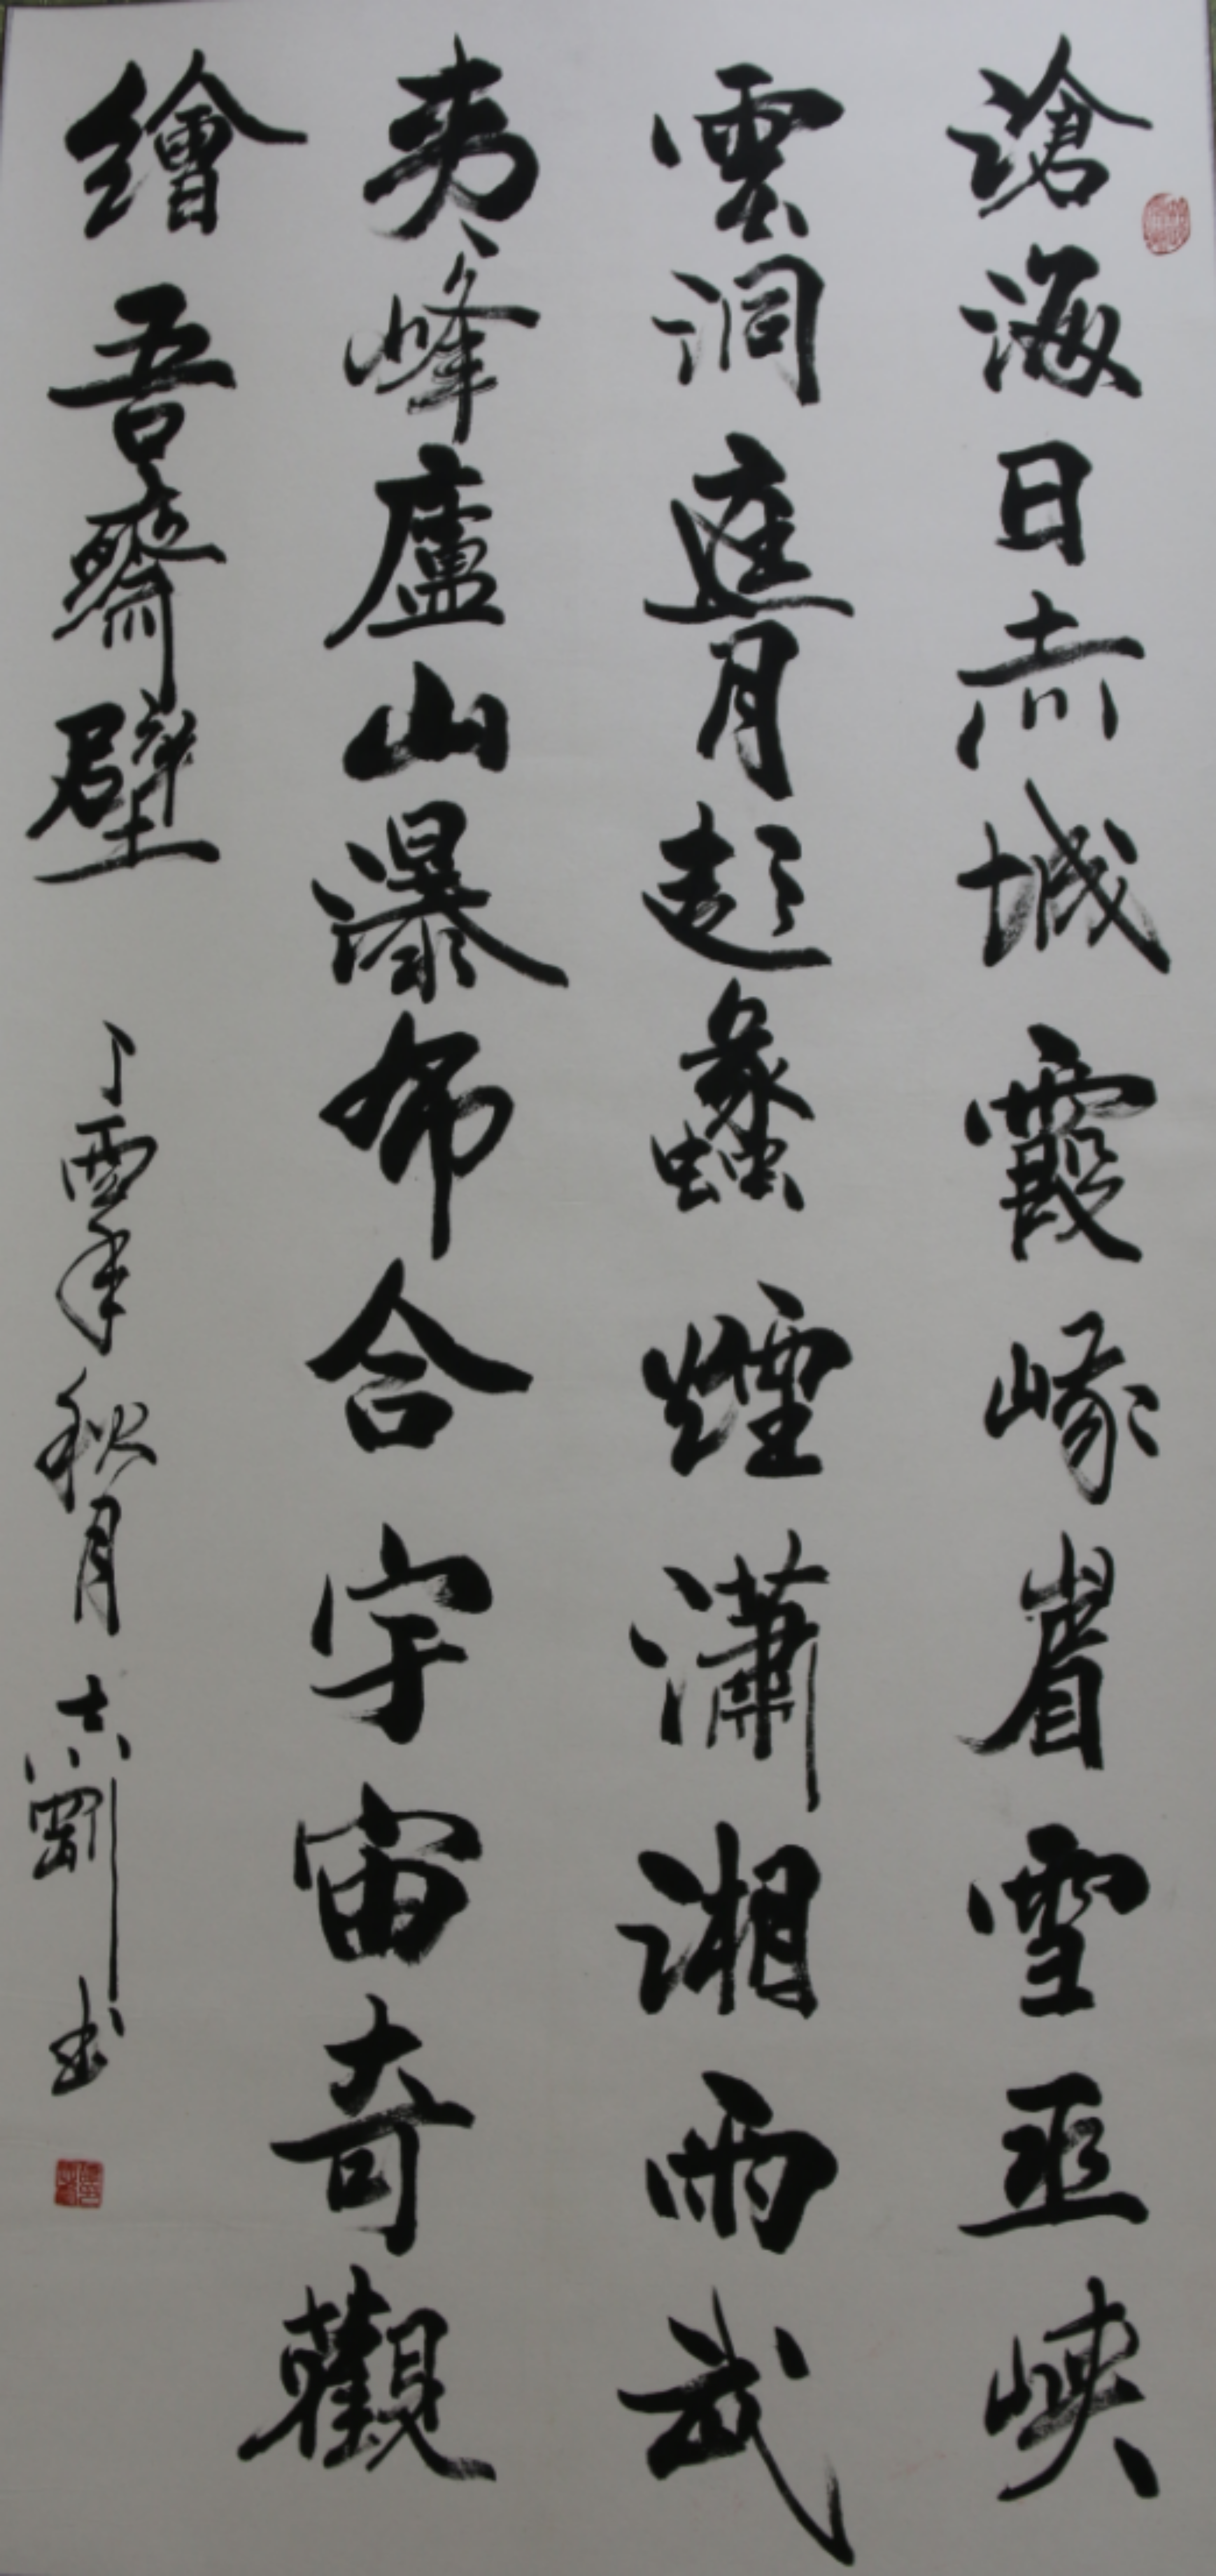 滄海日赤城霞峨眉雪巫峽
雲洞庭月彭蠡煙瀟湘雨武
夷峰廬山瀑布合宇宙奇觀
繪吾齋壁
丁酉年秋月志剛書